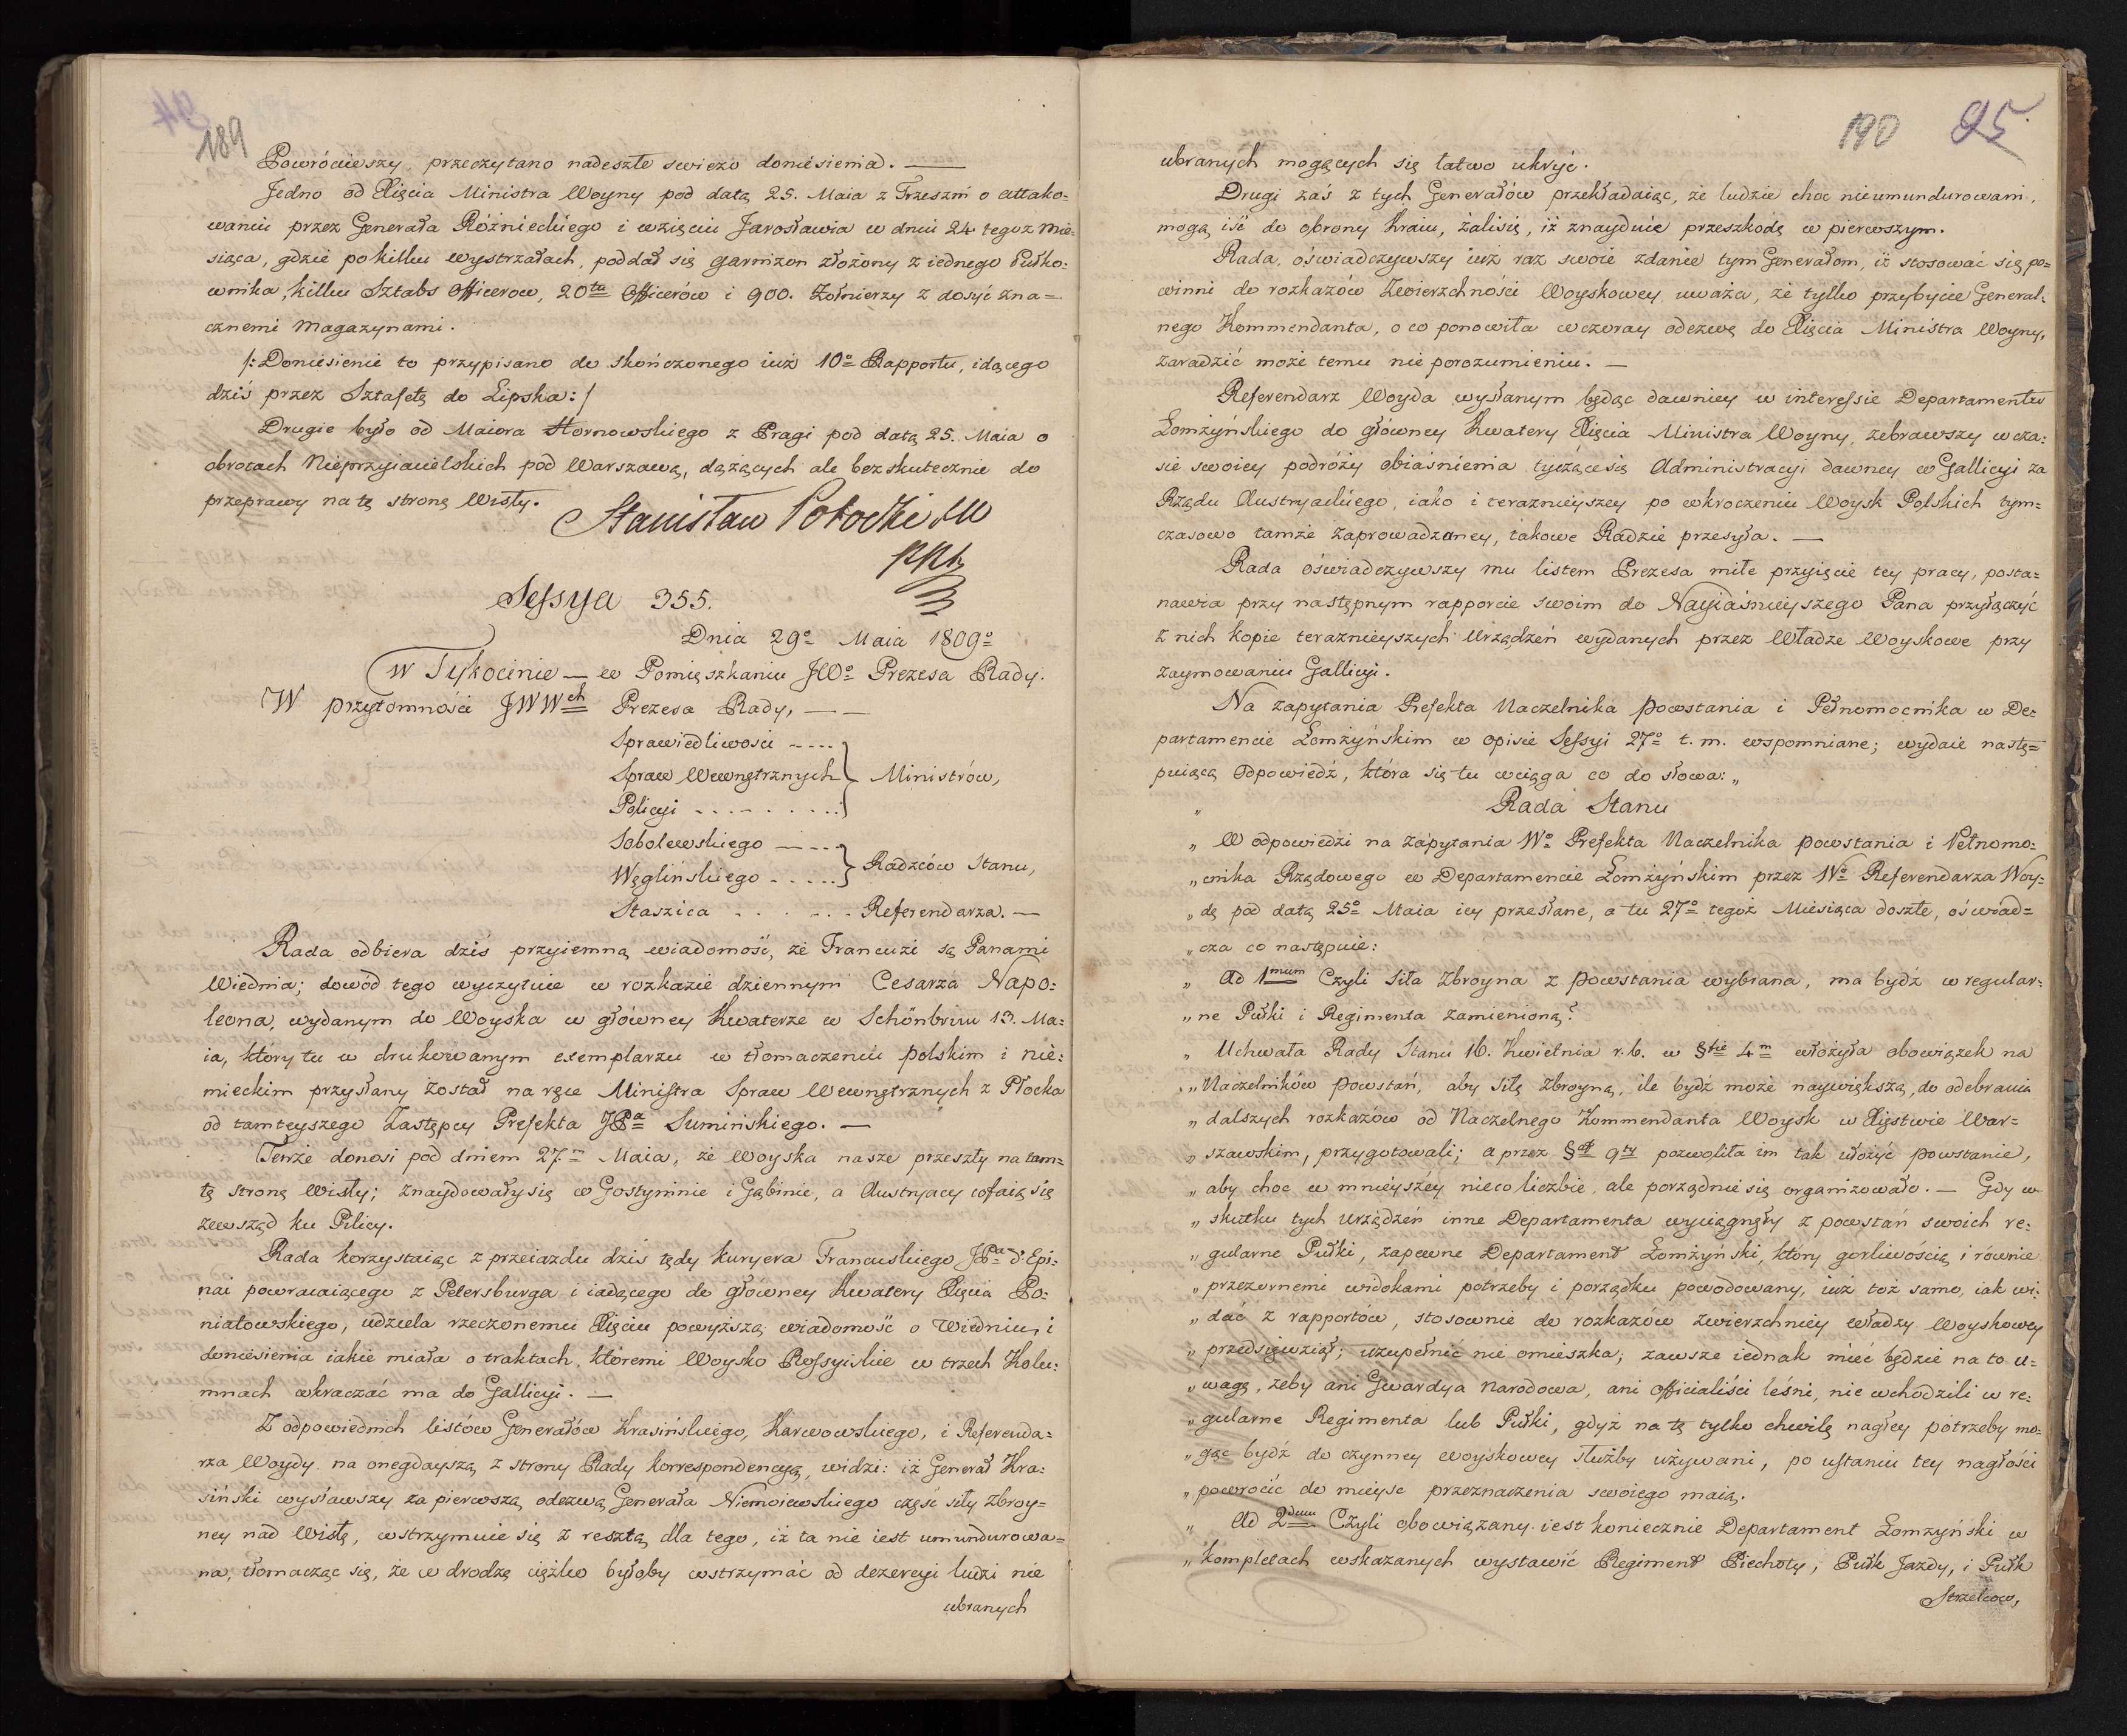 189
Powróciwszy, przeczytano nadeszłe swieżo doniesienia. —
Jedno od Xięcia Ministra Woyny pod datą 25. Maia z Trzeszni o attako=
waniu przez Generała Różnieckiego i wzięciu Jarosławia w dniu 24 tegoż mie=
siąca, gdzie po kilku wystrzałach, poddał się garnizon złożony z iednego Pułko=
wnika, kilku Sztabs Officerow, 20tu Officerów i 900. Żołnierzy z dosyć zna=
cznemi Magazynami.
/: Doniesienie to przypisano do skończonego iuż 10o Rapportu, idącego
dziś przez Sztafetę do Lipska :/
Drugie było od Maiora Hornowskiego z Pragi pod datą 25. Maia o
obrotach Nieprzyiacielskich pod Warszawą, dążących ale bezskutecznie do
przeprawy na tę stronę Wisły.
Stanisław Potocki
Sessya 355.
Dnia 29o Maia 1809o
W Tykocinie — w Pomięszkaniu JWo Prezesa Rady.
W przytomności JWWch Prezesa Rady, — —
Sprawiedliwosci - - - -
Spraw Wewnętrznych } Ministrów,
Policyi - - - - - - - -
Sobolewskiego — - - -
Węglińskiego - - - - - } Radzców Stanu,
Staszica - - - - - - Referendarza. —
Rada odbiera dziś przyiemną wiadomość, że Francuzi są Panami
Wiednia; dowód tego wyczytuie w rozkazie dziennym Cesarza Napo=
leona, wydanym do Woyska w główney Kwaterze w Schönbrun 13. Ma=
ia, który tu w drukowanym exemplarzu w tłomaczeniu polskim i nie=
mieckim przysłany został na ręce Ministra Spraw Wewnętrznych z Płocka
od tamteyszego Zastępcy Prefekta JPa Sumińskiego. —
Tenże donosi pod dniem 27m Maia, że Woyska nasze przeszły na tam=
tę stronę Wisły; znaydowały się w Gostyninie i Gąbinie, a Austryacy cofaią się
zewsząd ku Pilicy.
Rada korzystaiąc z przeiazdu dziś tędy kuryera Francuskiego JPa d'Epi=
nai powracaiącego z Petersburga i iadącego do główney Kwatery Xięcia Po=
niatowskiego, udziela rzeczonemu Xięciu powyższą wiadomość o Wiedniu, i
doniesienia iakie miała o traktach, któremi Woysko Rossyiskie w trzech Kolu=
mnach wkraczać ma do Gallicyi. —
Z odpowiednich listów Generałów Krasińskiego, Karwowskiego, i Referenda=
rza Woydy na onegdayszą z strony Rady korrespondencyą, widzi: iż Generał Kra=
siński wysławszy za pierwszą odezwą Generała Niemoiewskiego część siły zbroy=
ney nad Wisłę, wstrzymuie się z resztą dla tego, iż ta nie iest umundurowa=
na, tłomacząc się, że w drodze ciężko byłoby wstrzymać od dezercyi ludzi nie
ubranych
190 95
ubranych mogących się łatwo ukryć.
Drugi zaś z tych Generałów przekładaiąc, że ludzie choc nieumundurowani,
mogą iść do obrony Kraiu, żali się, iż znayduie przeszkodę w pierwszym.
Rada, oświadczywszy iuż raz swoie zdanie tym Generałom, iż stosować się po=
winni do rozkazów Zwierzchności Woyskowey, uważa, że tylko przybycie General=
nego Kommendanta, o co ponowiła wczoray odezwę do Xięcia Ministra Woyny,
zaradzić może temu nieporozumieniu. —
Referendarz Woyda wysłanym będąc dawniey w interessie Departamentu
Łomżyńskiego do główney Kwatery Xięcia Ministra Woyny, zebrawszy w cza=
sie swoiey podróży obiaśnienia tyczące się Administracyi dawney w Gallicyi za
Rządu Austryackiego, iako i teraznieyszey po wkroczeniu Woysk Polskich tym=
czasowo tamże zaprowadzaney, takowe Radzie przesyła. —
Rada oświadczywszy mu listem Prezesa miłe przyięcie tey pracy, posta=
nawia przy następnym rapporcie swoim do Nayiaśnieyszego Pana przyłączyć
z nich kopie teraznieyszych Urządzeń wydanych przez Władze Woyskowe przy
zaymowaniu Gallicyi.
Na zapytania Prefekta Naczelnika powstania i Pełnomocnika w De=
partamencie Łomżyńskim w opisie Sessyi 27o t. m. wspomniane; wydaie nastę=
puiącą odpowiedź, która się tu wciąga co do słowa: „
„ Rada Stanu
„ W odpowiedzi na zapytania Wo Prefekta Naczelnika powstania i Pełnomo=
„ cnika Rządowego w Departamencie Łomżyńskim przez Wo Referendarza Woy=
„ dę pod datą 25o Maia iey przesłane, a tu 27o tegoż Miesiąca doszłe, oświad=
„ cza co następuie:
„ Ad 1mum Czyli siła zbroyna z powstania wybrana, ma bydź w regular=
„ ne Pułki i Regimenta zamienioną?
„ Uchwała Rady Stanu 16. Kwietnia r. b. w §fie 4m włożyła obowiązek na
„ Naczelników powstań, aby siłę zbroyną, ile bydź może naywiększą, do odebrania
„ dalszych rozkazów od Naczelnego Kommendanta Woysk w Xięstwie War=
„ szawskim, przygotowali; a przez §af 9ty pozwoliła im tak ułożyć powstanie,
„ aby choc w mnieyszéy nieco liczbie, ale porządnie się organizowało. — Gdy w
„ skutku tych urządzeń inne Departamenta wyciągnęły z powstań swoich re=
„ gularne Pułki, zapewne Departament Łomżyński, który gorliwością i równie
„ przezornemi widokami potrzeby i porządku powodowany, iuż toż samo, iak wi=
„ dać z rapportów, stosownie do rozkazów zwierzchniéy władzy Woyskowey
„ przedsięwziął; uzupełnić nie omieszka; zawsze iednak mieć będzie na to u=
„ wagę, żeby ani Gwardya Narodowa, ani Officialiści leśni, nie wchodzili w re=
„ gularne Regimenta lub Pułki, gdyż na tę tylko chwilę nagłey potrzeby mo=
„ gąc bydź do czynney woyskowey służby używani, po ustaniu tey nagłości
„ powrócić do mieysc przeznaczenia swoiego maią.
„ Ad 2dum Czyli obowiązany iest koniecznie Departament Łomżyński w
„ kompletach wskazanych wystawić Regiment Piechoty, Pułk Jazdy, i Pułk
Strzelców,